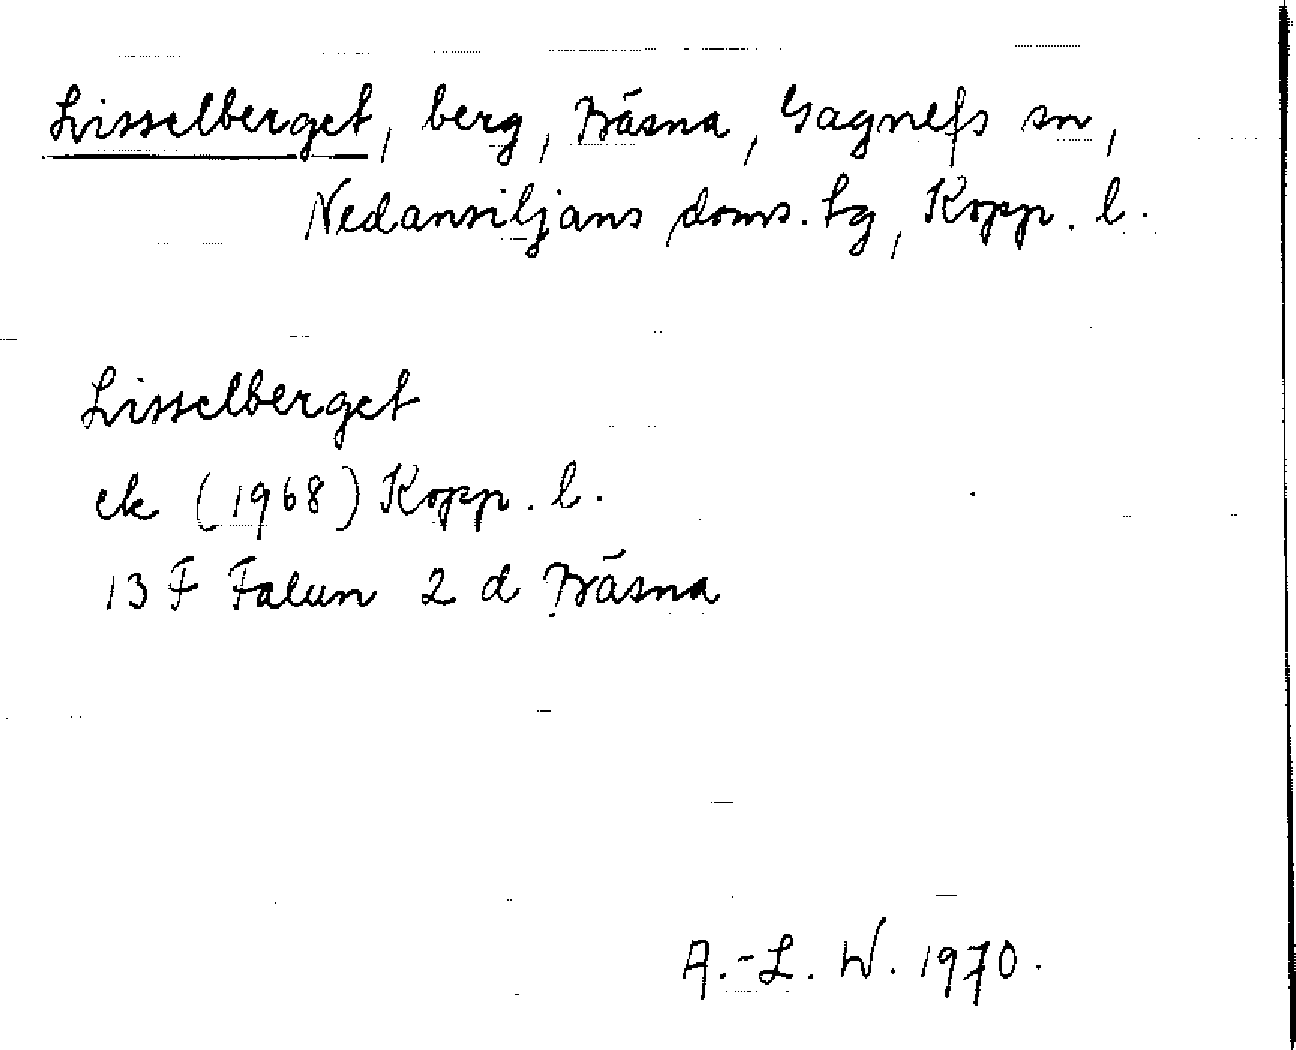 Lisselberget, berg, Bäsna, Gagnefs sn,
Nedansiljans doms. tg, Kopp. l.
Lisselberget
ek (1968) Kopp. l.
13 F Falun 2 d Bäsna
A.-L. W. 1970.